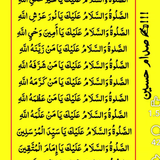 اَلصَّلٰوةُ وَالسَّلَامُ عَلَيْكَ يَا خَيْرَ خَلْقِ اللهِ
اَلصَّلٰوةُ وَالسَّلَامُ عَلَيْكَ يَا نُوْرَ عَرْشِ اللهِ
اَلصَّلٰوةُ وَالسَّلَامُ عَلَيْكَ يَا اَمِيْنَ وَحْيِ اللهِ
اَلصَّلٰوةُ وَالسَّلَامُ عَلَيْكَ يَا مَنْ زَيَّنَهُ اللهُ
اَلصَّلٰوةُ وَالسَّلَامُ عَلَيْكَ يَا مَنْ شَرَّفَهُ اللهُ
اَلصَّلٰوةُ وَالسَّلَامُ عَلَيْكَ يَا مَنْ كَرَّمَهُ اللهُ
اَلصَّلٰوةُ وَالسَّلَامُ عَلَيْكَ يَا مَنْ عَظَّمَهُ اللهُ
اَلصَّلٰوةُ وَالسَّلَامُ عَلَيْكَ يَا سَيِّدَ الْمُرْسَلِيْنَ
اَلصَّلٰوةُ وَالسَّلَامُ عَلَيْكَ يَا اِمَامَ الْمُتَّقِيْنَ
صدام حسين !!!